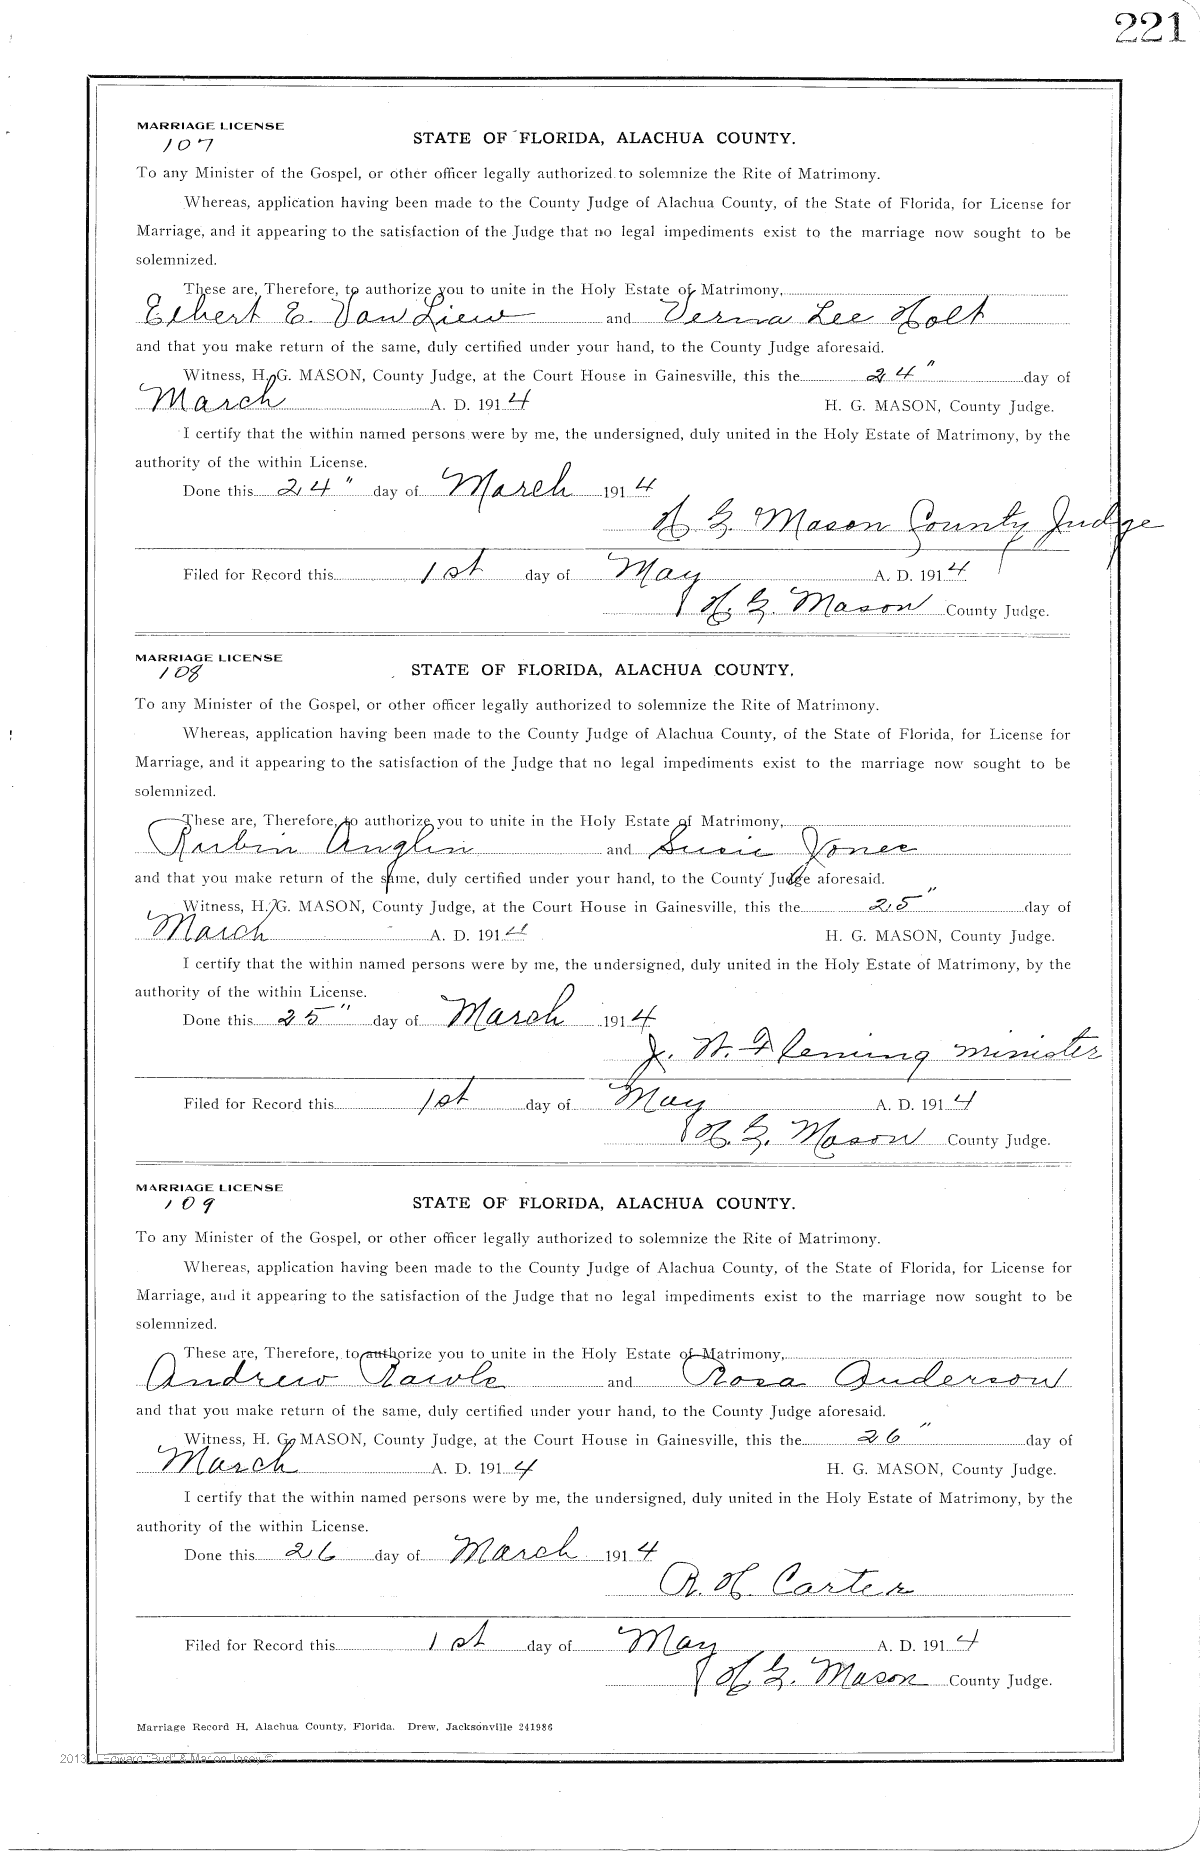 221
MARRIAGE LICENSE
107
STATE OF FLORIDA, ALACHUA COUNTY.
To any Minister of the Gospel, or other officer legally authorized to solemnize the Rite of Matrimony.
Whereas, application having been made to the County Judge of Alachua County, of the State of Florida, for License for
Marriage, and it appearing to the satisfaction of the Judge that no legal impediments exist to the marriage now sought to be
solemnized.
These are, Therefore, to authorize you to unite in the Holy Estate of Matrimony,
Elbert E. Van Liew and Verna Lee Holt
and that you make return of the same, duly certified under your hand, to the County Judge aforesaid.
Witness, H. G. MASON, County Judge, at the Court House in Gainesville, this the 24" day of
March A. D. 1914 H. G. MASON, County Judge.
I certify that the within named persons were by me, the undersigned, duly united in the Holy Estate of Matrimony, by the
authority of the within License.
Done this 24" day of March 1914
H. G. Mason County Judge
Filed for Record this 1st day of May A. D. 1914
H. G. Mason County Judge.
MARRIAGE LICENSE
108
STATE OF FLORIDA, ALACHUA COUNTY.
To any Minister of the Gospel, or other officer legally authorized to solemnize the Rite of Matrimony.
Whereas, application having been made to the County Judge of Alachua County, of the State of Florida, for License for
Marriage, and it appearing to the satisfaction of the Judge that no legal impediments exist to the marriage now sought to be
solemnized.
These are, Therefore, to authorize you to unite in the Holy Estate of Matrimony,
Rubin Anglin and Susie Jones
and that you make return of the same, duly certified under your hand, to the County Judge aforesaid.
Witness, H. G. MASON, County Judge, at the Court House in Gainesville, this the 25" day of
March A. D. 1914 H. G. MASON, County Judge.
I certify that the within named persons were by me, the undersigned, duly united in the Holy Estate of Matrimony, by the
authority of the within License.
Done this 25" day of March 1914
J. W. Fleming minister
Filed for Record this 1st day of May A. D. 1914
H. G. Mason County Judge.
MARRIAGE LICENSE
109
STATE OF FLORIDA, ALACHUA COUNTY.
To any Minister of the Gospel, or other officer legally authorized to solemnize the Rite of Matrimony.
Whereas, application having been made to the County Judge of Alachua County, of the State of Florida, for License for
Marriage, and it appearing to the satisfaction of the Judge that no legal impediments exist to the marriage now sought to be
solemnized.
These are, Therefore, to authorize you to unite in the Holy Estate of Matrimony,
Andrew Rawls and Rosa Anderson
and that you make return of the same, duly certified under your hand, to the County Judge aforesaid.
Witness, H. G. MASON, County Judge, at the Court House in Gainesville, this the 26" day of
March A. D. 1914 H. G. MASON, County Judge.
I certify that the within named persons were by me, the undersigned, duly united in the Holy Estate of Matrimony, by the
authority of the within License.
Done this 26 day of March 1914
R. H. Carter
Filed for Record this 1st day of May A. D. 1914
H. G. Mason County Judge.
Marriage Record H, Alachua County, Florida. Drew, Jacksonville 241986
2013 Edward "Bud" &